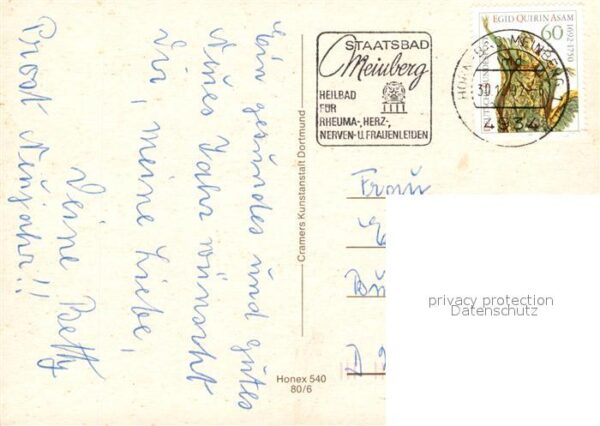 Ein gesundes und gutes
Neues Jahr wünscht
Dir, meine Liebe,
Deine Betty
Prost Neujahr!!
Cramers Kunstanstalt Dortmund
Honex 540
80/6
STAATSBAD
Meinberg
HEILBAD
FÜR
RHEUMA-, HERZ-,
NERVEN- U. FRAUENLEIDEN
EGID QUIRIN ASAM
1692-1750
60
DEUTSCHE BUNDESPOST
HORN-BAD MEINBERG
30.12.92
4934
Frau
privacy protection
Datenschutz